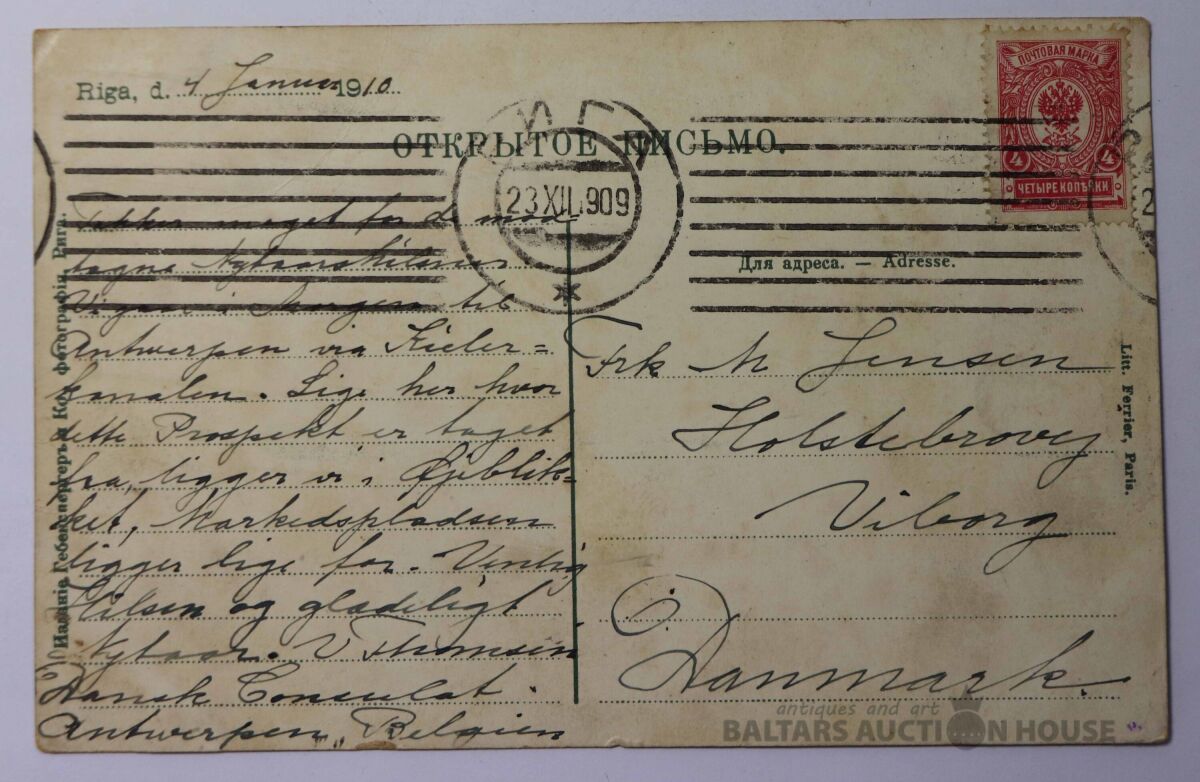 Riga, d. 4 Januar 1910
ОТКРЫТОЕ ПИСЬМО.
ПОЧТОВАЯ МАРКА
4 4
ЧЕТЫРЕ КОПѢЙКИ
23 XII. 909
Для адреса. — Adresse.
Takker meget for de mod
tagne Nytaarshilsener
Vi gaar i Morgen til
Antwerpen via Kieler=
kanalen. Lige her hvor
dette Prospekt er taget
fra, ligger vi i Øjeblik=
ket, Markedspladsen
ligger lige for. Venlig
Hilsen og glædeligt
Nytaar. V Thomsen
Dansk Consulat.
Antwerpen, Belgien
Frk M Jensen
Holstebrovej
Viborg
Danmark.
Изданіе Гебенспергеръ и Ко. фотографія, Рига.
Litt. Ferrier, Paris.
antiques and art
BALTARS AUCTION HOUSE